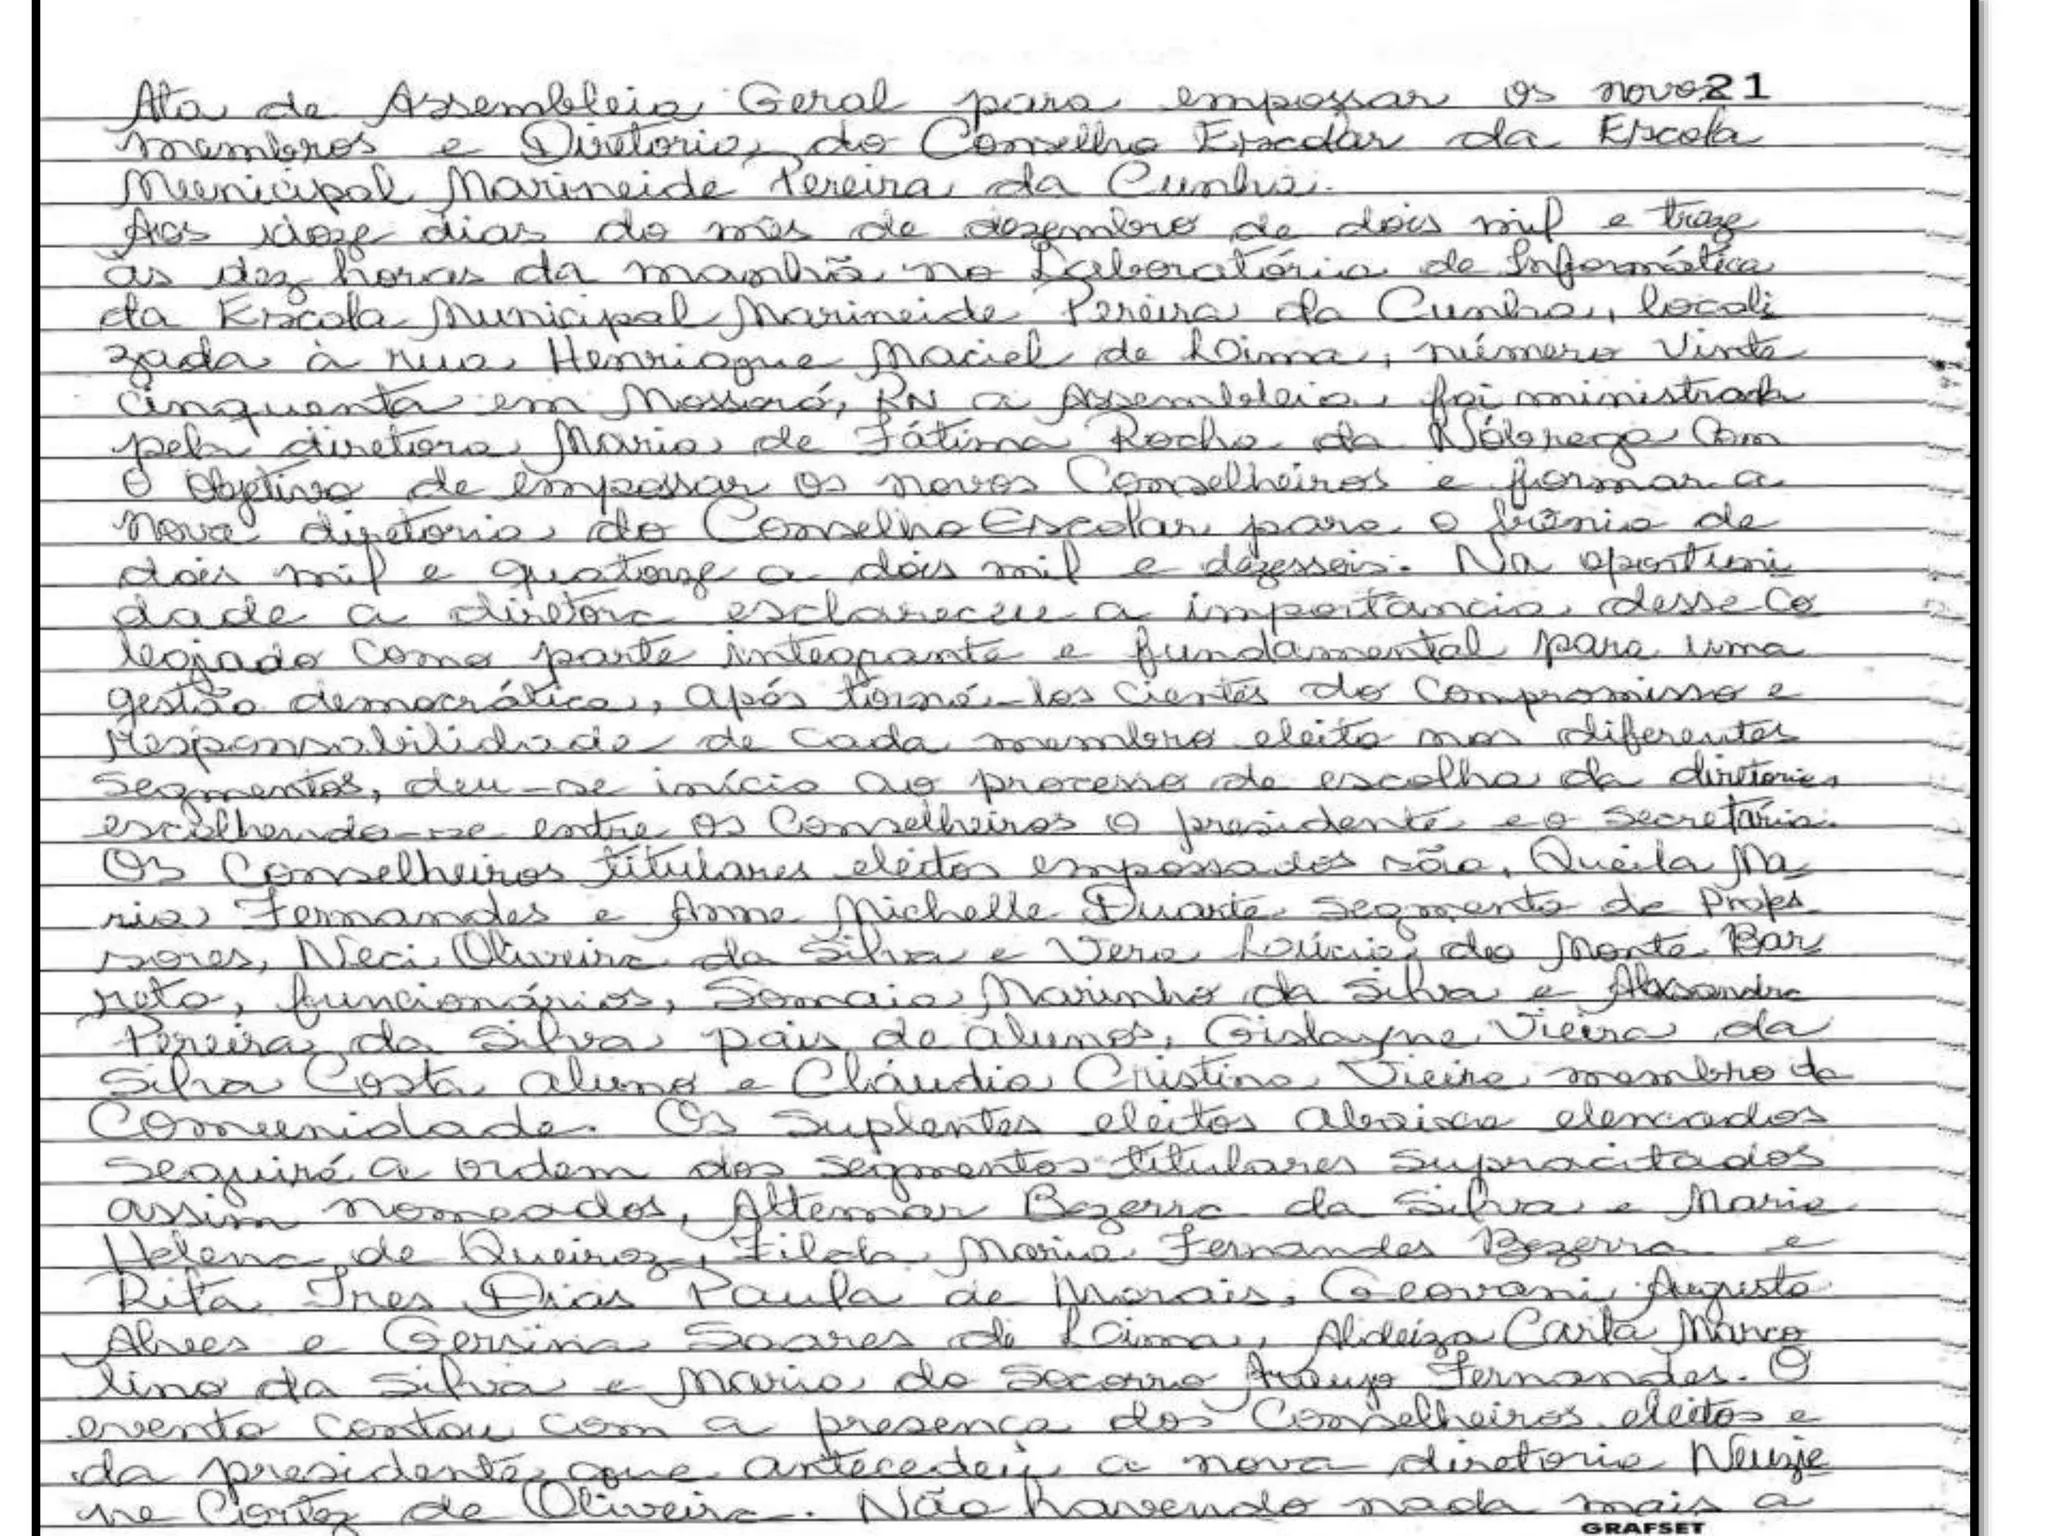 Ata de Assembleia Geral para empossar os novos 21
membros e Diretoria do Conselho Escolar da Escola
Municipal Marineide Pereira da Cunha.
Aos doze dias do mês de dezembro de dois mil e treze
às dez horas da manhã no Laboratório de Informática
da Escola Municipal Marineide Pereira da Cunha, locali
zada à rua Henrique Maciel de Lima, número vinte
cinquenta em Mossoró, RN a Assembleia foi ministrada
pela diretora Maria de Fátima Rocha da Nóbrega com
o objetivo de empossar os novos Conselheiros e formar a
nova diretoria do Conselho Escolar para o triênio de
dois mil e quatorze a dois mil e dezesseis. Na oportuni
dade a diretora esclareceu a importância desse co
legiado como parte integrante e fundamental para uma
gestão democrática, após torná-los cientes do compromisso e
responsabilidade de cada membro eleito nos diferentes
segmentos, deu-se início ao processo de escolha da diretoria
escolhendo-se entre os Conselheiros o presidente e o secretário.
Os Conselheiros titulares eleitos empossados são, Queila Ma
ria Fernandes e Anne Michelle Duarte segmento de Profes
sores, Neci Oliveira da Silva e Vera Lúcia do Monte Bar
reto, funcionários, Somaia Marinho da Silva e Alexsandra
Pereira da Silva pais de alunos, Gislayne Vieira da
Silva Costa aluno e Cláudia Cristina Vieira membro da
Comunidade. Os suplentes eleitos abaixo elencados
seguirá a ordem dos segmentos titulares supracitados
assim nomeados, Altemar Bezerra da Silva e Maria
Helena de Queiroz, Filda Maria Fernandes Bezerra e
Rita Ires Dias Paula de Morais, Geovani Augusto
Alves e Gersina Soares de Lima, Aldeiza Carla Marco
lino da Silva e Maria do Socorro Araujo Fernandes. O
evento contou com a presença dos Conselheiros eleitos e
da presidente que antecedeu a nova diretoria Neuzie
ne Cortez de Oliveira. Não havendo nada mais a
GRAFSET